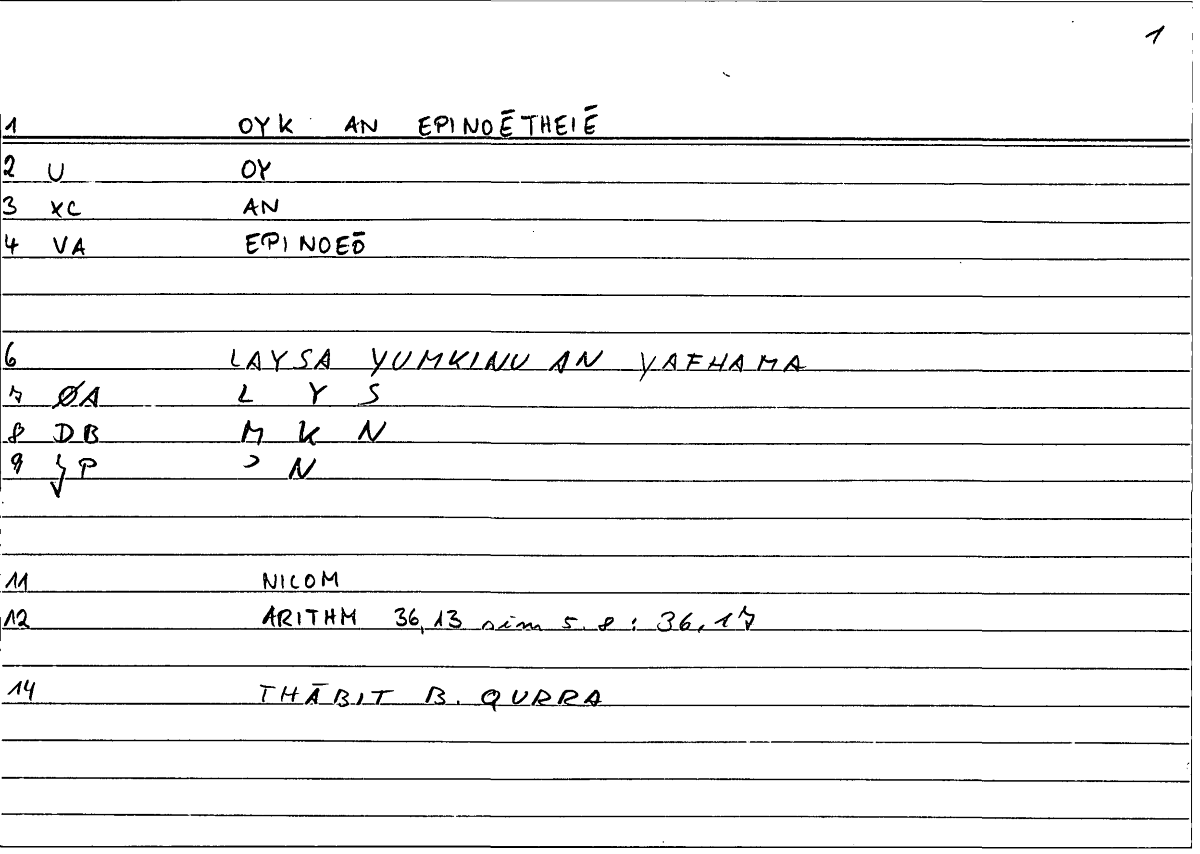 1
1 OYK AN EPINOĒTHEIĒ
2 U OY
3 XC AN
4 VA EPINOEŌ
6 LAYSA YUMKINU AN YAFHAMA
7 ØA L Y S
8 DB M K N
9 P ʾ N
11 NICOM
12 ARITHM 36,13 sim 5.8 : 36,17
14 THĀBIT B. QURRA